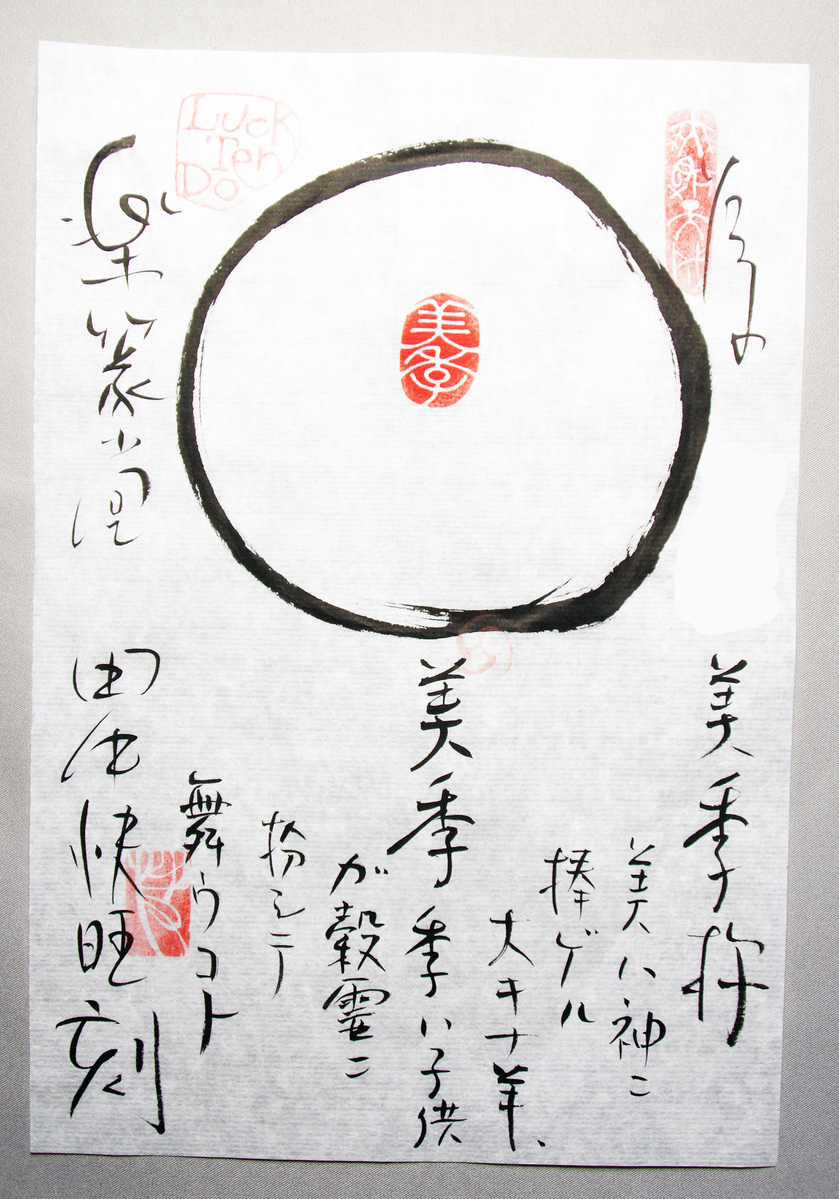 美季
美ハ神ニ
捧ゲル
大キナ羊、
美季 季ハ子供
ガ穀霊ニ
扮シテ
舞ウコト
楽篆
田中快旺刻
美季
Luck
Ten
Do